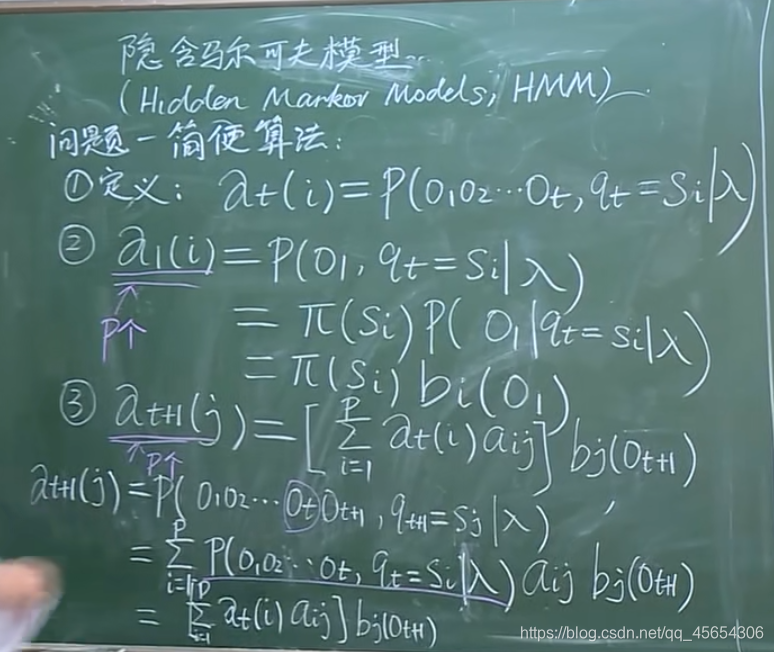 隐含马尔可夫模型
(Hidden Markov Models, HMM)
问题一简便算法:
①定义: a_t(i) = P(O_1O_2⋯O_t, q_t = S_i|λ)
② a_1(i) = P(O_1, q_t = S_i|λ)
P个
= π(S_i) P( O_1|q_t = S_i|λ)
= π(S_i) b_i(O_1)
③ a_{t+1}(j) = [∑_{i=1}^{P} a_t(i) a_{ij}] b_j(O_{t+1})
P个
a_{t+1}(j) = P( O_1O_2⋯O_tO_{t+1}, q_{t+1} = S_j|λ)
= ∑_{i=1}^{P} P(O_1O_2⋯O_t, q_t = S_i|λ) a_{ij} b_j(O_{t+1})
= [∑_{i=1}^{P} a_t(i) a_{ij}] b_j(O_{t+1})
https://blog.csdn.net/qq_45654306